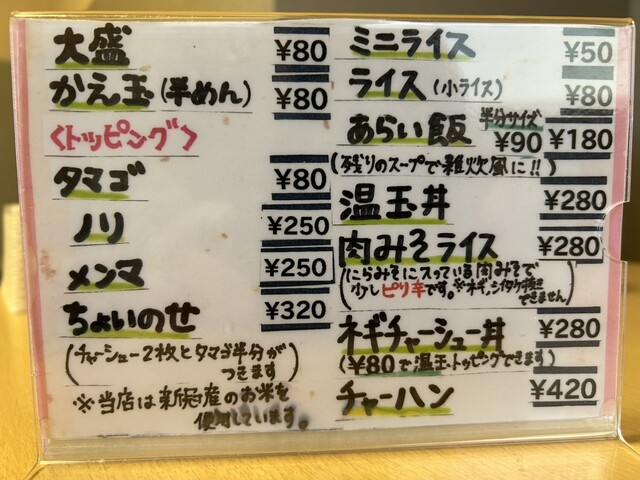 大盛 ¥80
かえ玉(半めん) ¥80
<トッピング>
タマゴ ¥80
ノリ ¥250
メンマ ¥250
ちょいのせ ¥320
(チャーシュー2枚とタマゴ半分が
つきます)
※当店は新冠産のお米を
使用しています。
ミニライス ¥50
ライス(小ライス) ¥80
あらい飯 半分サイズ ¥90 ¥180
(残りのスープで雑炊風に!!)
温玉丼 ¥280
肉みそライス ¥280
(にらみそに入っている肉みそで
少しピリ辛です。※ネギ、シイタケ抜き
できません)
ネギチャーシュー丼 ¥280
(¥80で温玉トッピングできます)
チャーハン ¥420